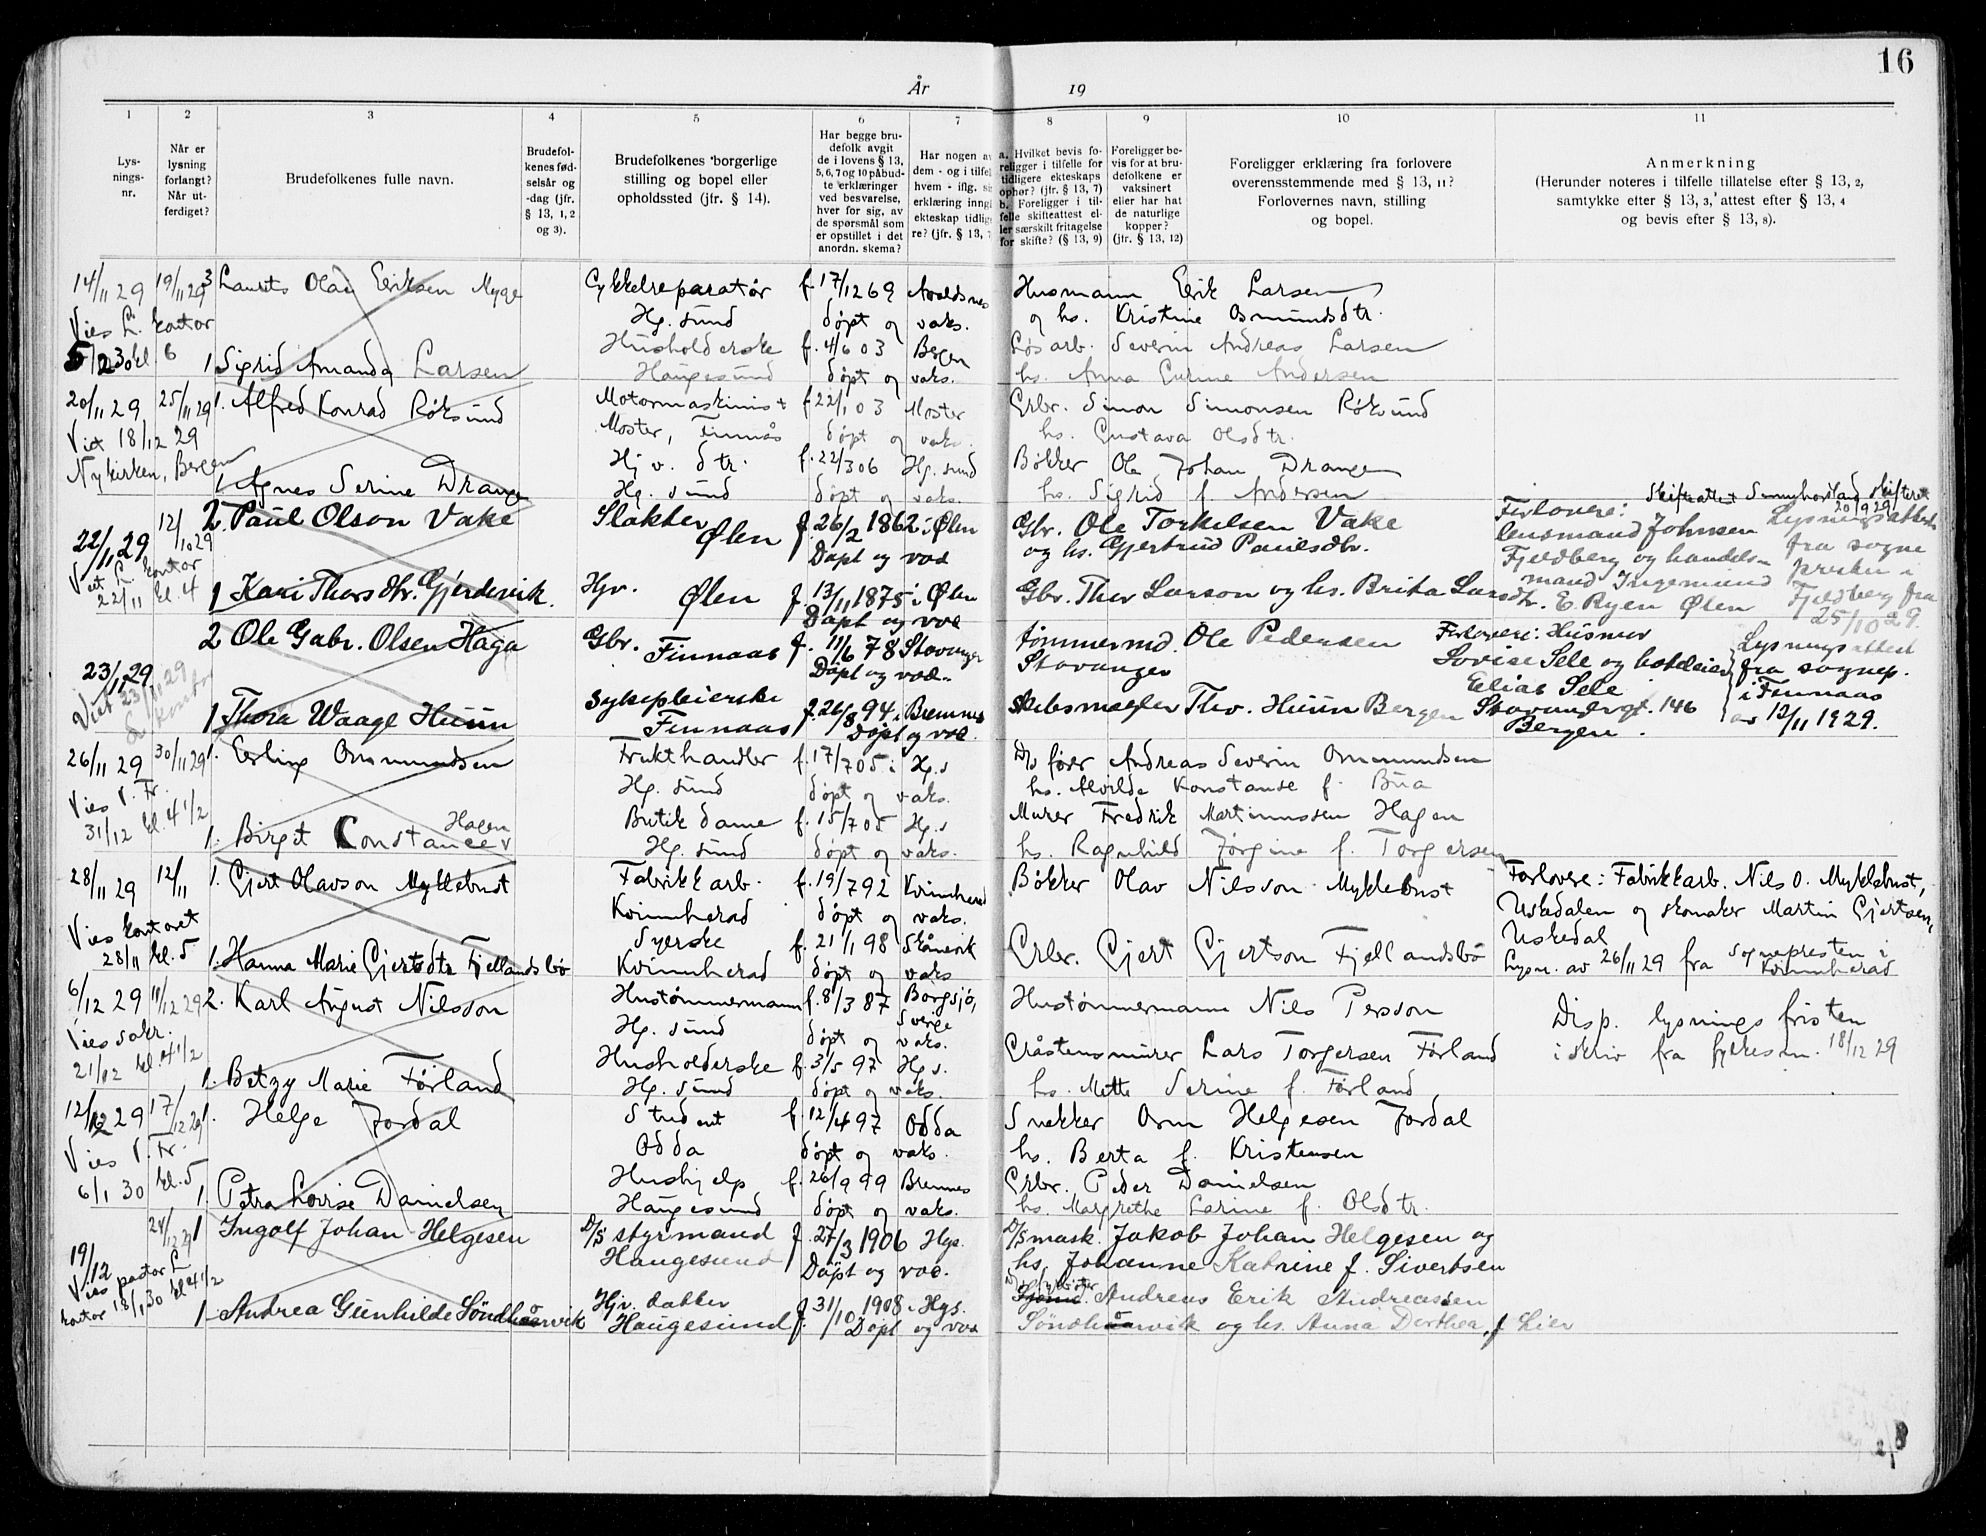 16
År 19
1 2 3 4 5 6 7 8 9 10 11
Lysningsnr.
Når er lysning forlangt? Når utferdiget?
Brudefolkenes fulle navn.
Brudefolkenes fødselsår og -dag (jfr. § 13, 1, 2 og 3).
Brudefolkenes borgerlige stilling og bopel eller opholdssted (jfr. § 14).
Har begge brudefolk avgit de i lovens § 13, 5, 6, 7 og 10 påbudte erklæringer ved besvarelse, hver for sig, av de spørsmål som er opstillet i det anordn. skema?
Har nogen av dem - og i tilfel hvem - iflg. si erklæring inng ekteskap tidlig re? (jfr. § 13, 7
a. Hvilket bevis foreligger i tilfelle for tidligere ekteskaps ophør? (jfr. § 13, 7)
b. Foreligger i tilfelle skifteattest eller særskilt fritagelse for skifte? (§ 13, 9)
Foreligger bevis for at brudefolkene er vaksinert eller har hat de naturlige kopper? (jfr. § 13, 12)
Foreligger erklæring fra forlovere overensstemmende med § 13, 11? Forlovernes navn, stilling og bopel.
Anmerkning
(Herunder noteres i tilfelle tillatelse efter § 13, 2, samtykke efter § 13, 3, attest efter § 13, 4 og bevis efter § 13, 8).
14/11 29 19/11 29 3 Laurits Olai Eriksen Myge Cykkelreparatør f. 17/12 69 Avaldsnes Husmann Erik Larsen
Vies L. kontor Hg. sund døpt og vaks. og hs. Kristine Osmundsdtr.
5/12 30 kl 6 1 Sigrid Amanda Larsen Husholderske f. 4/6 03 Bergen Løsarb. Severin Andreas Larsen
Haugesund døpt og vaks. hs. Anna Gurine Andersen
20/11 29 25/11 29 1. Alfred Konrad Røksund Motormaskinist f 22/1 03 Moster Grbr. Simon Simonsen Røksund
Viet 18/12 29 Moster, Finnås døpt og vaks. hs. Gustava Olsdtr.
Nykirken, Bergen 1. Agnes Serine Drange Hj v. dtr. f. 22/3 06 Hg. sund Bøkker Ole Johan Drange
Hg. sund døpt og vaks. hs. Sigrid f. Andersen
22/11 29 12/10 29 2. Paul Olson Vake Slakter Ølen f. 26/2 1862 i Ølen Gbr. Ole Torkelsen Vake
Døpt og vac og hs. Gjertrud Paulsdtr.
Skifteattest Sunnhordland skifteret 20/9 29
Forlovere: lensmand Johnsen Fjeldberg og handelsmand Ingemund E. Ryen Ølen
Lysningsattest fra sognepresten i Fjeldberg fra 25/10 29.
Viet L. kontor 22/11 kl. 4 1 Kari Thorsdtr. Gjerdevik. Hjv. Ølen f. 13/11 1875 i Ølen Gbr. Thor Larson og hs. Brita Larsdtr.
Døpt og vac
23/11 29 2 Ole Gabr. Olsen Haga Gbr. Finnaas f. 11/6 78 Stavanger tømmermd. Ole Pedersen
Døpt og vac. Stavanger
Forlovere: Husmor Lovise Sele og hoteleier Elias Sele Bergen.
Lysningsattest fra sognep. i Finnaas av 12/11 1929.
Viet 23/11 29 L. kontor 1 Thora Waage Huun Sykepleierske Finnaas f. 26/8 94 i Bremnes Skibsmægler Thv. Huun Bergen
Døpt og vac.
26/11 29 30/11 29 1. Erling Ommundsen Frukthandler f. 17/7 05 i Hg.s D/s fører Andreas Severin Ommundsen
Vies V. Fr. Hg. sund døpt og vaks. hs. Alvilde Konstanse f. Bua
31/12 kl. 4 1/2 1. Birgit Constance Hagen Butikdame f. 15/7 05 Hg.s Murer Fredrik Martinussen Hagen
Hg. sund døpt og vaks. hs. Ragnhild Jørgine f. Torgersen
28/11 29 12/11 1. Gjert Olavson Myklebust Fabrikkarb. f. 19/7 92 Kvinnherad Bøkker Olav Nilsson Myklebust
Vies kontoret Kvinnherad døpt og vaks.
Forlovere: Fabrikkarb. Nils O. Myklebust, Uskedalen og skomaker Martin Gjertsen, Uskedal
28/11 kl. 5 1. Hanna Marie Gjertsdtr Fjellandsbø Syerske f. 21/1 98 Skånevik Grbr. Gjert Gjertson Fjellandsbø
Kvinnherad døpt og vaks
Lysn. av 26/11 29 fra sognepresten i Kvinnherad
6/12 29 11/12 29 2. Karl August Nilsson Hustømmermann f. 8/3 87 Borgsjø, Sverige Hustømmermann Nils Persson
Vies sakr. Hg. sund døpt og vaks.
Disp. lysningsfristen i skriv fra fylkesm. 18/12 29
21/12 kl. 4 1/2 1. Betzy Marie Førland Husholderske f. 3/5 97 Hg s. Gråstensmurer Lars Torgersen Førland
Hg. sund døpt og vaks. hs. Mette Serine f. Førland
12/12 29 17/12 29 1. Helge Jordal Student f 12/4 97 Odda Snekker Orm Helgesen Jordal
Vies V. Fr. Odda døpt og vaks. hs. Berta f. Kristensen
6/1 30 kl. 5 1. Petra Lovise Danielsen Hushjelp f. 26/9 99 Bremnes Grbr. Peder Danielsen
Haugesund døpt og vaks. hs. Margrethe Larine f. Olsdtr.
19/12 24/12 29 1 Ingolf Johan Helgesen D/S styrmand f. 27/3 1906 Hgs. D/S mask. Jakob Johan Helgesen og
Haugesund Døpt og vac. hs. Johanne Katrine f. Sivertsen
Vies pastor L kontor 18/1 30 kl 4 1/2 1 Andrea Gunhilde Söndhåarvik Hjv. datter f. 31/10 1908 i Hgs. Andreas Erik Andreassen
Haugesund Døpt og vac Söndhåarvik og hs. Anna Dorthea f Lier
2/8